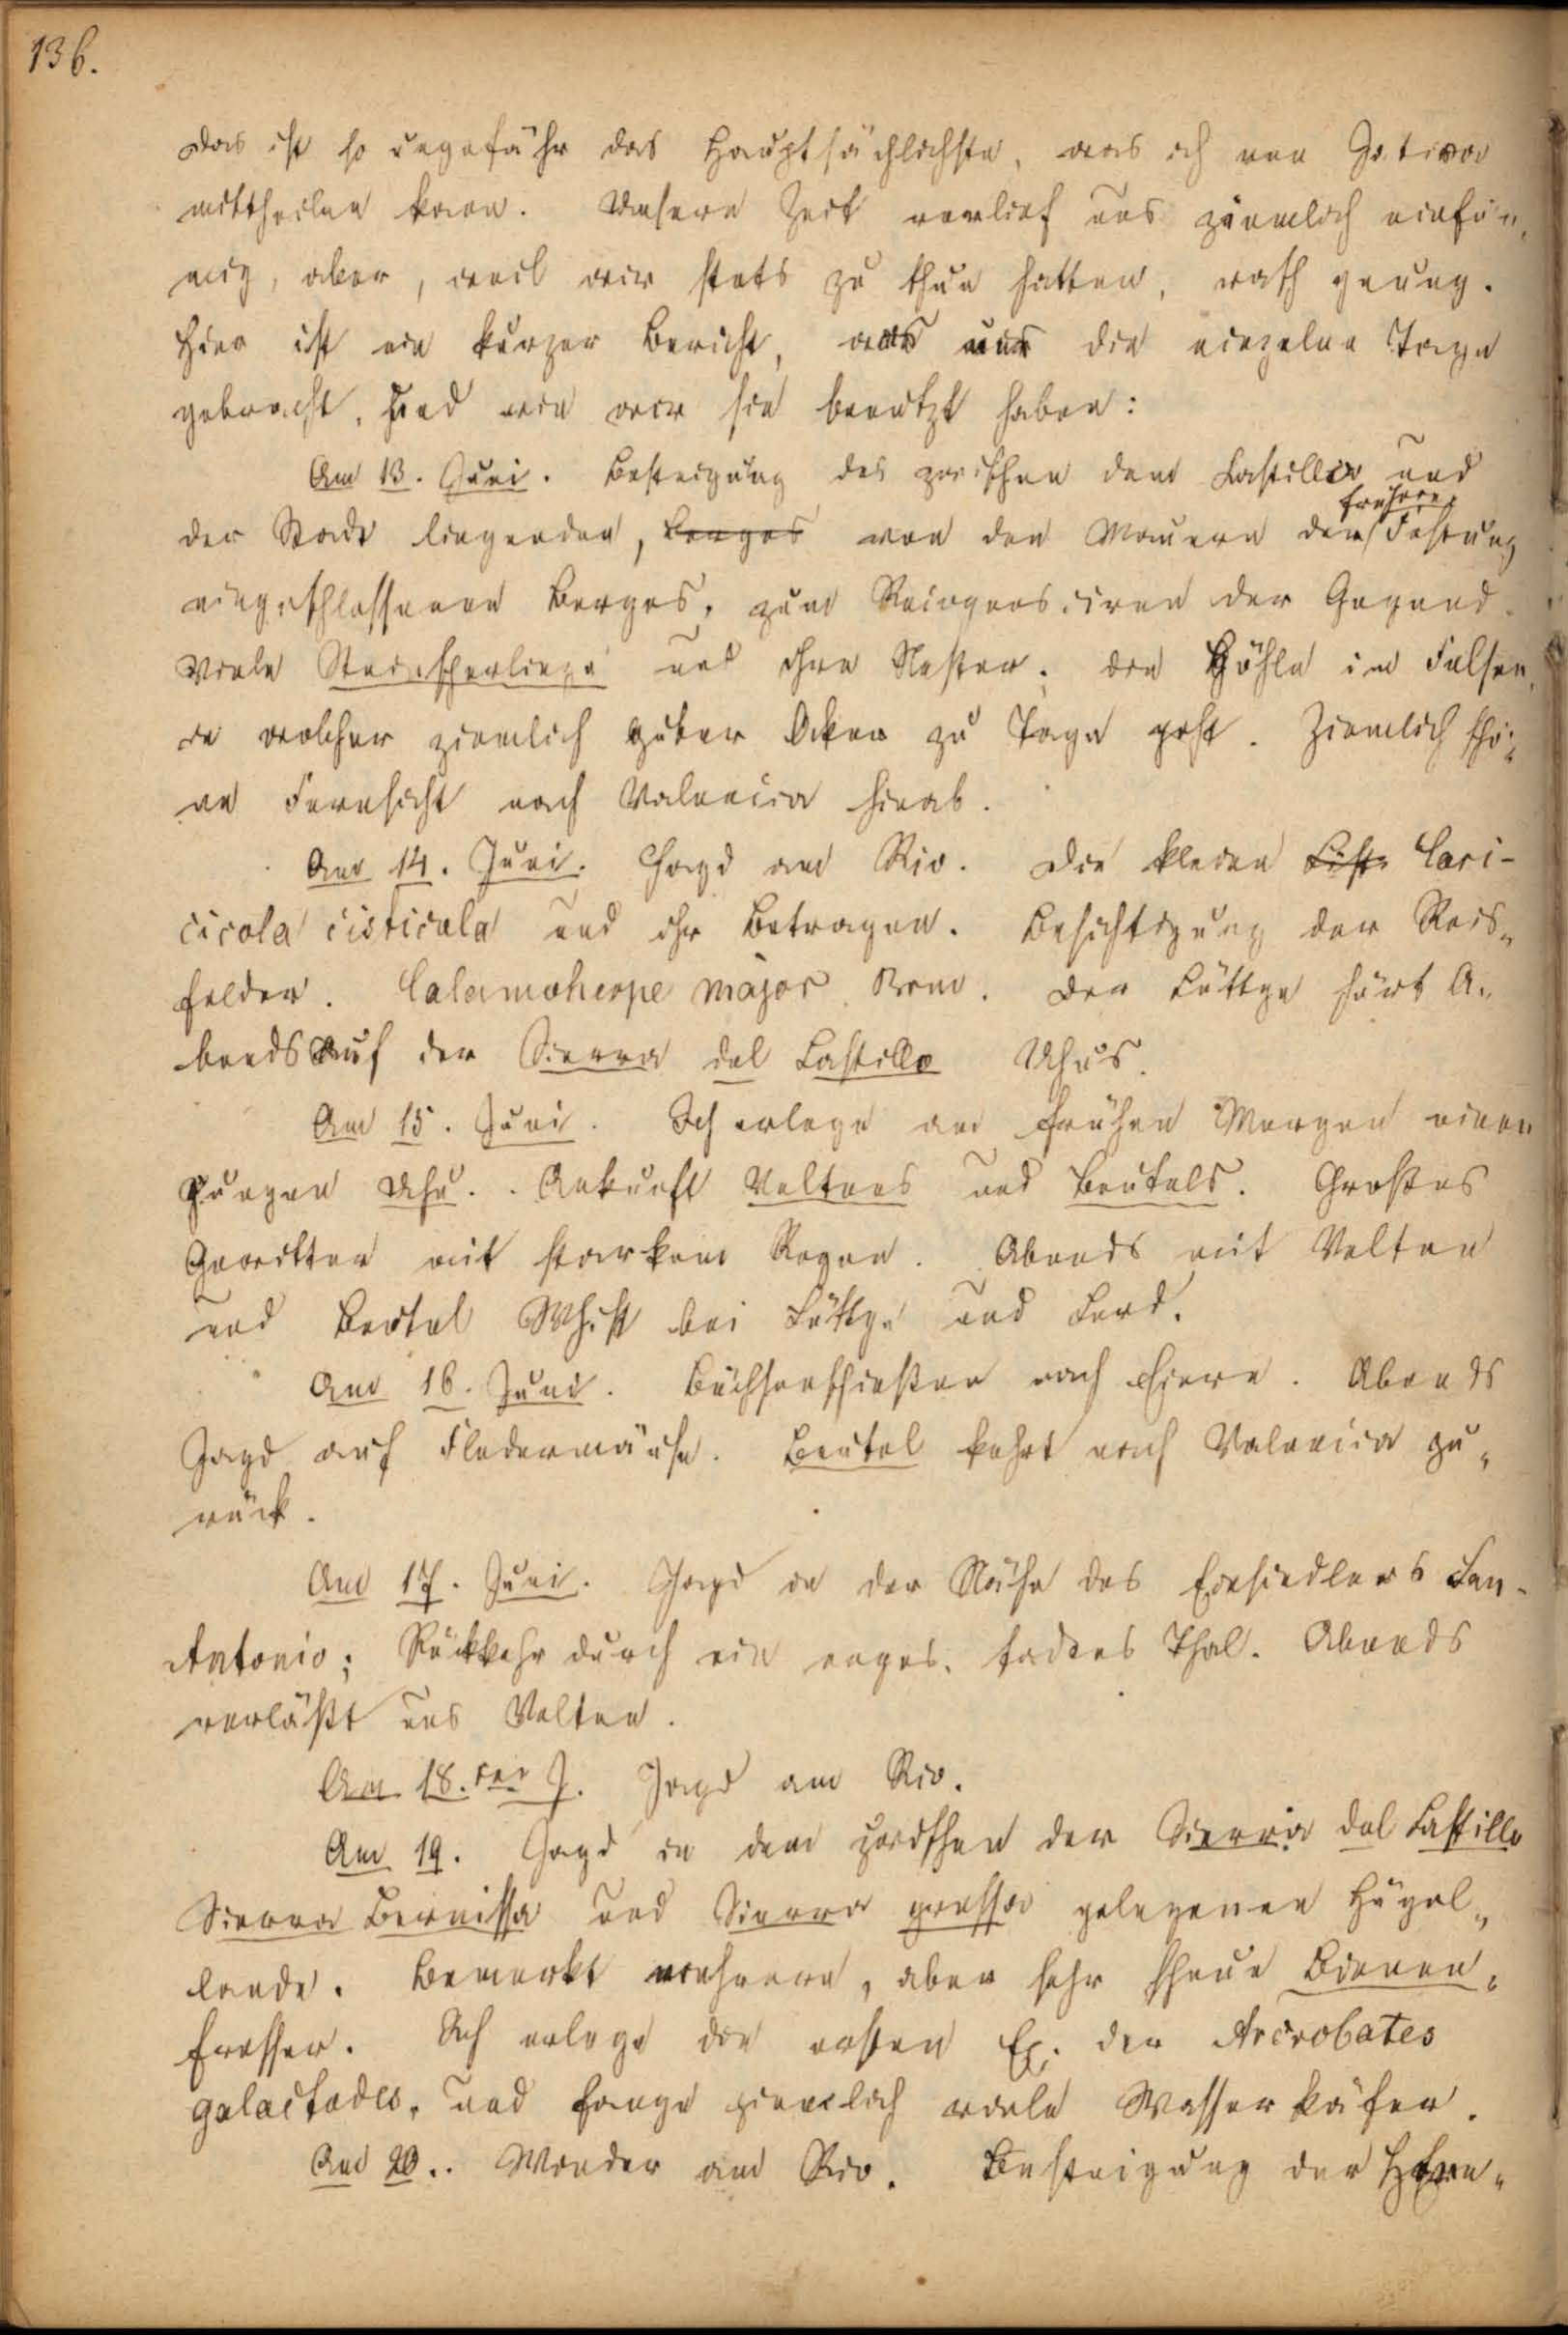 136.
Das ist so ungefähr das Hauptsächlichste, was ich von Jativa
mittheilen kann. Unsere Zeit verlief uns ziemlich einför„
mig, aber, weil wir stets zu thun hatten, rasch genug.
Hier ist ein kurzer Bericht, was uns die einzelne Tage
gebracht, und wie wir sie benutzt haben:
Am 13. Juni. Besteigung des zwischen dem Castillo und
der Stadt liegenden, Berges von den Mauern der früheren Festung
eingeschlossenen Berges, zum Recognosciren der Gegend.
Viele Steinsperlinge und ihre Nester; die Höhle im Felsen,
in welcher ziemlich guter Ocker zu Tage geht. Ziemlich schö„
ne Fernsicht nach Valencia hinab.
Am 14. Juni. Jagd am Rio. Die kleine Cist. Cari-
cicola cisticola und ihr Betragen. Besichtigung der Reis„
felder. Calamoherpe major Brm. Der Lüttge hört A„
bends auf der Sierra del Castillo Uhus.
Am 15. Juni. Ich erlege am frühen Morgen einen
jungen Uhu. Ankunft Veltens und Beutels. Großes
Gewitter mit starkem Regen. Abends mit Velten
und Beutel Whist bei Lüttge und Ferd.
Am 16. Juni. Büchsenschießen nach Eiern. Abends
Jagd auf Fledermäuse. Beutel kehrt nach Valencia zu„
rück.
Am 17. Juni. Jagd in der Nähe des Einsiedlers San-
Antonio; Rückkehr durch ein enges, todtes Thal. Abends
verläßt uns Velten.
Am 18.ten J. Jagd am Rio.
Am 19. Jagd in dem zwischen der Sierra del Castillo
Sierra Bernissa und Sierra grossa gelegenen Hügel„
lande. Bemerkt mehrere, aber sehr scheue Bienen„
fresser. Ich erlege die ersten Ex. der Aëdrobates
galactodes, und fange ziemlich viele Wasserkäfer.
Am 20.. Wieder am Rio. Besteigung der